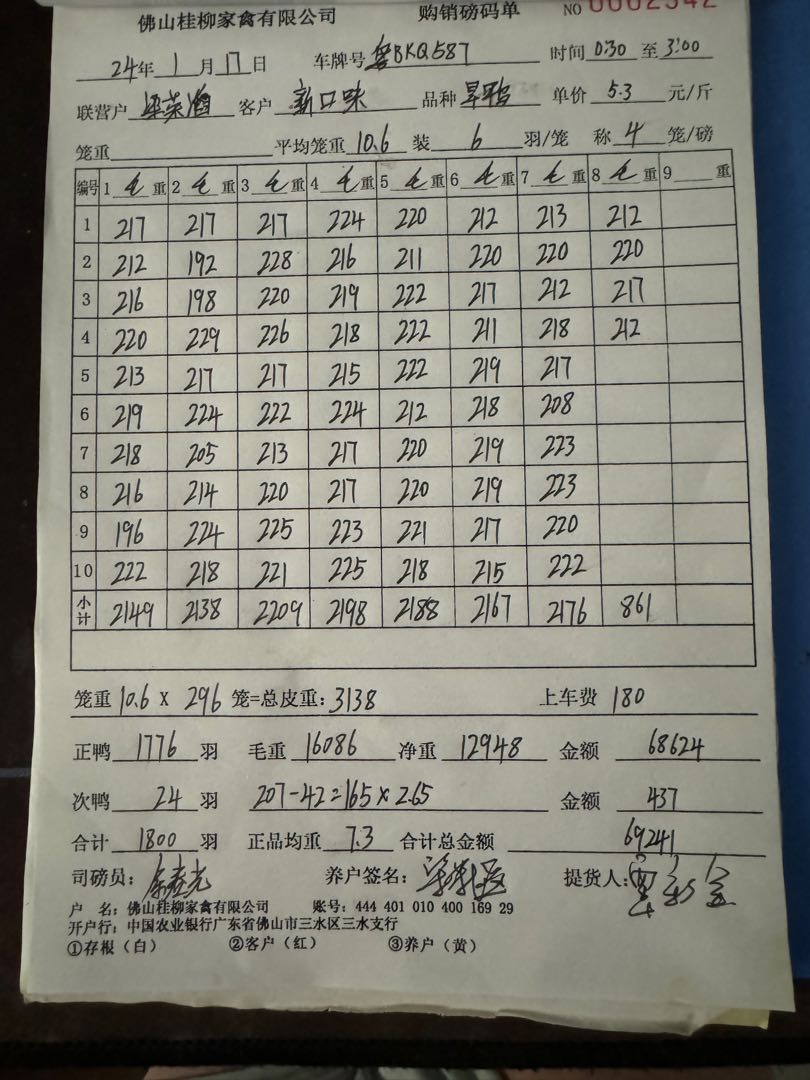 佛山桂柳家禽有限公司 购销磅码单 NO 0002342
24年1月17日 车牌号 粤BKQ587 时间 0:30 至 3:00
联营户 客户 新口味 品种 旱鸭 单价 5.3 元/斤
笼重 平均笼重 10.6 装 6 羽/笼 称 4 笼/磅
编号 1 毛重 2 毛重 3 毛重 4 毛重 5 毛重 6 毛重 7 毛重 8 毛重 9 重
1 217 217 217 224 220 212 213 212
2 212 192 228 216 211 220 220 220
3 216 198 220 219 222 217 212 217
4 220 229 226 218 222 211 218 212
5 213 217 217 215 222 219 217
6 219 224 222 224 212 218 208
7 218 205 213 217 220 219 223
8 216 214 220 217 220 219 223
9 196 224 225 223 221 217 220
10 222 218 221 225 218 215 222
小计 2149 2138 2209 2198 2188 2167 2176 861
笼重 10.6 X 296 笼=总皮重: 3138 上车费 180
正鸭 1776 羽 毛重 16086 净重 12948 金额 68624
次鸭 24 羽 207-42=165×2.65 金额 437
合计 1800 羽 正品均重 7.3 合计总金额 69241
司磅员: 养户签名: 提货人:
户 名: 佛山桂柳家禽有限公司 账号: 444 401 010 400 169 29
开户行: 中国农业银行广东省佛山市三水区三水支行
①存根（白） ②客户（红） ③养户（黄）